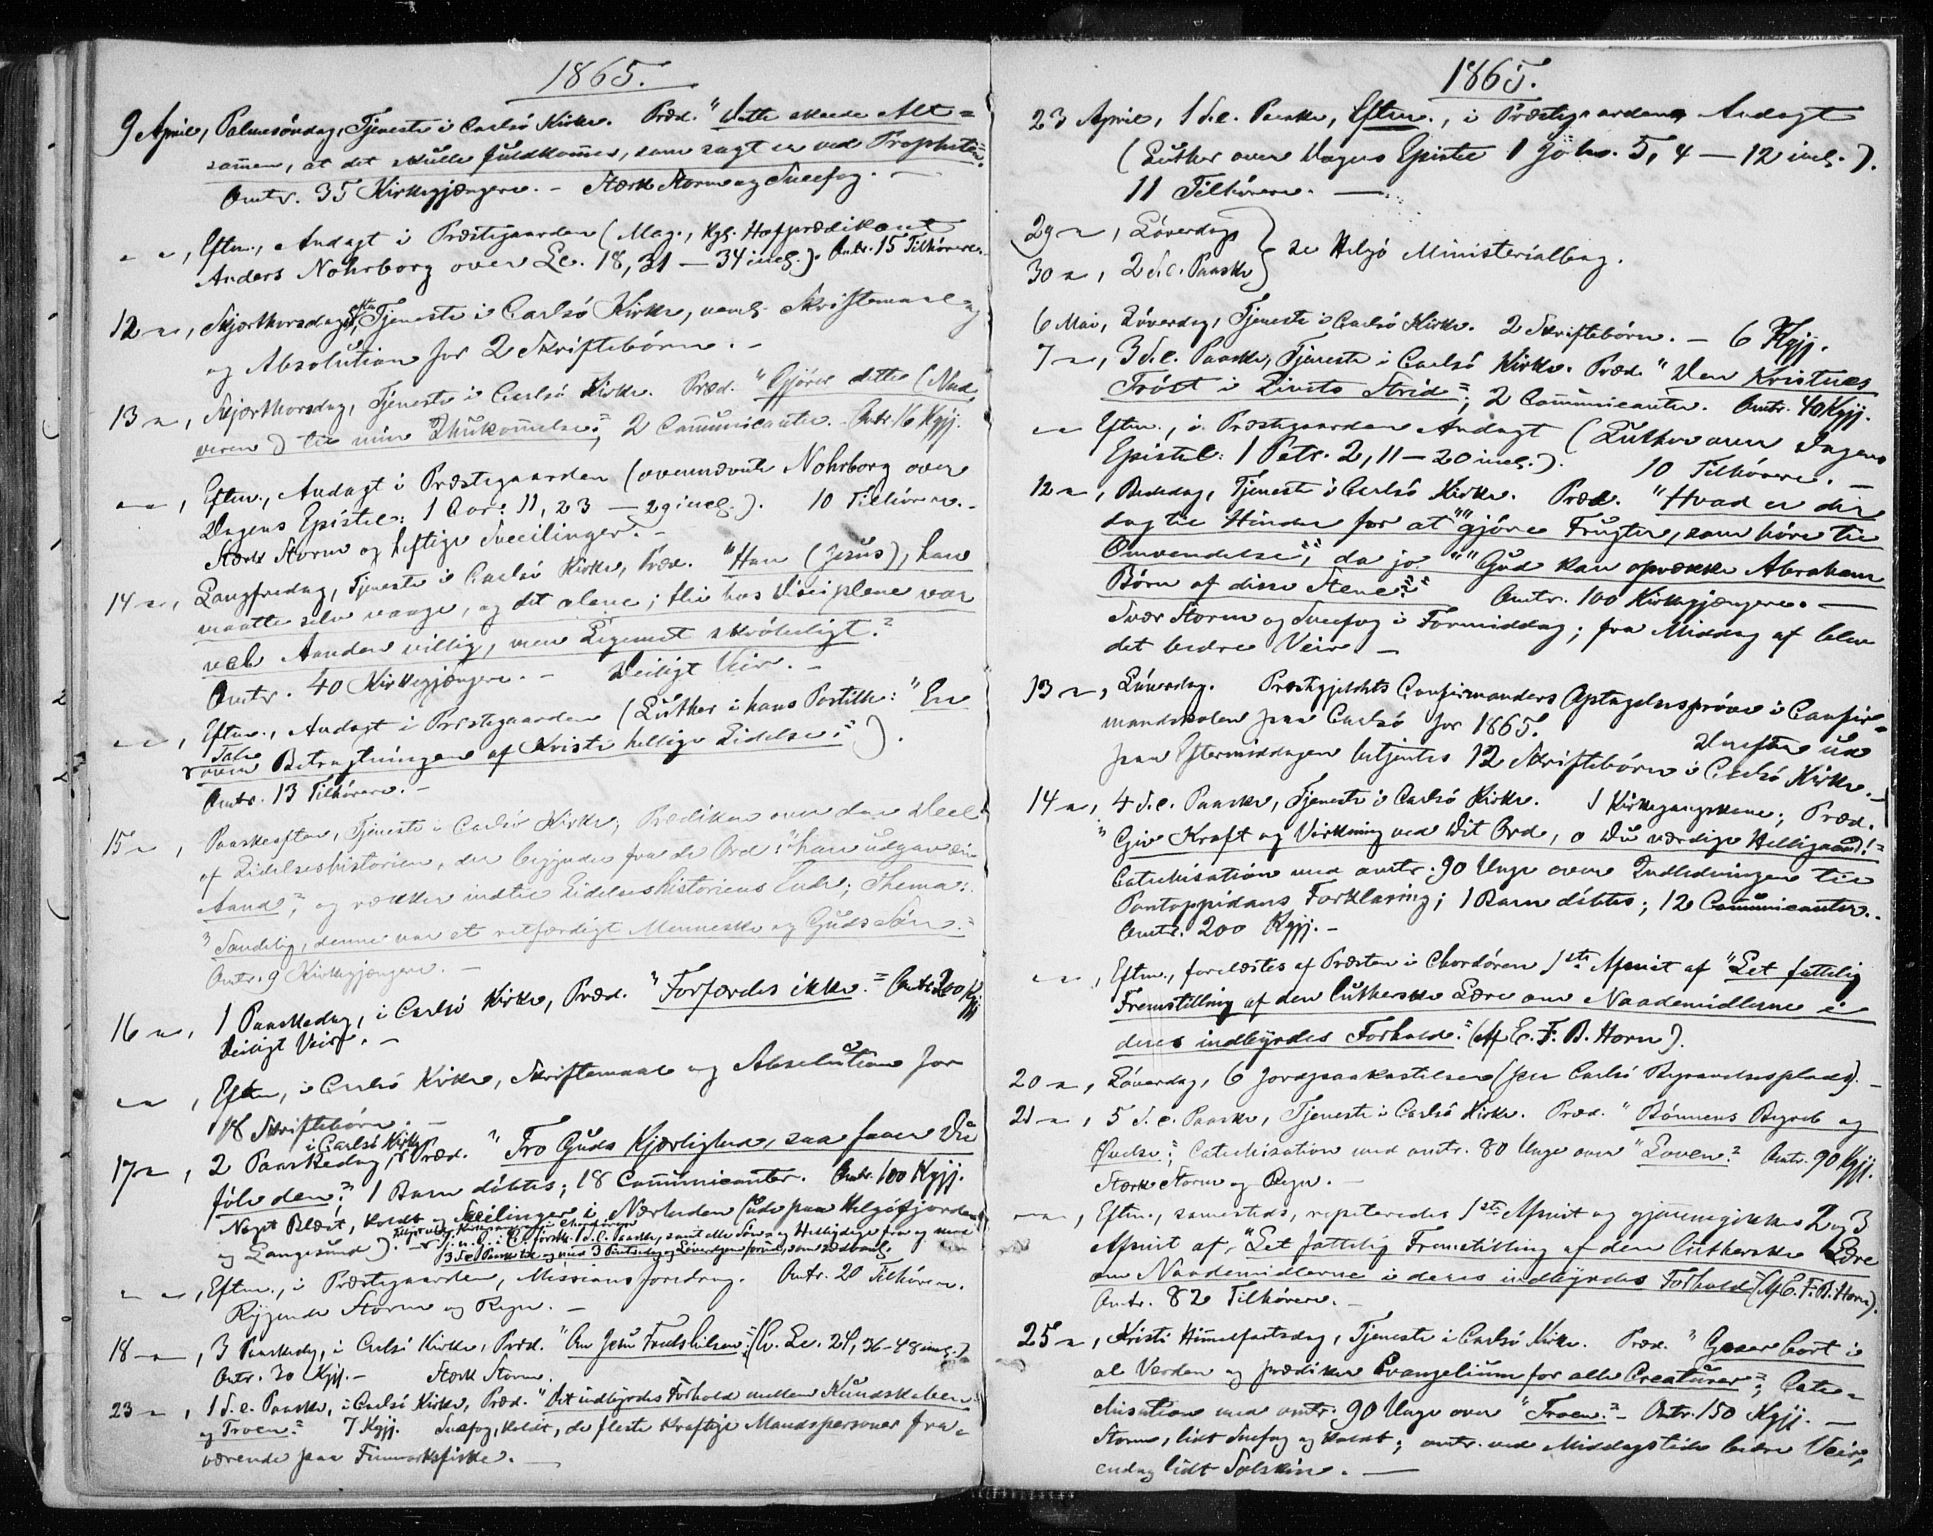 1865.
9 April, Palmesöndag, Tjeneste i Carlsö Kirke. Præd. "Dette skede Alt=
sam̄en, at det skulle fuldkom̄es, som sagt er ved Propheten."
Omtr. 35 Kirkegjængere. – Stærk Storm og Sneefog. –
" ", Eftm., Andagt i Præstegaarden (Mag., Kgl. Hofprædikant
Anders Nohrborg over Lc. 18, 31 – 34 incl.). Omtr. 15 Tilhörere.
12 ", Skjærthorsdags Tjeneste i Carlsö Kirke, Skriftemaal
og Absolution for 2 Skriftebörn. –
13 ", Skjærthorsdag, Tjeneste i Carlsö Kirke. Præd. "Gjører dette (Nad
veren) til min Ihukom̄else"; 2 Com̄unicanter. Omtr. 16 Kgjj.
" ", Eftm., Andagt i Præstegaarden (ovennævnte Nohrborg over
Dagens Epistel: 1 Cor. 11, 23 – 29 incl.). 10 Tilhörere. –
Stærk Storm og heftige Sneeilinger. –
14 ", Langfredag, Tjeneste i Carlsö Kirke, Præd. "Han (Jesus), han
maatte selv vaage, og det alene; thi hos Disciplene var
vel Aanden villig, men Legemet skröbeligt."
Omtr. 40 Kirkegjængere. – Deiligt Veir. –
" ", Eftm., Andagt i Præstegaarden (Luther i hans Postille: "En
Tale
over Betragtningen af Kristi hellige Lidelse.").
Omtr. 13 Tilhörere. –
15 ", Paaskeaften, Tjeneste i Carlsö Kirke; Prædiken over den Deel
af Lidelseshistorien, der begynder fra de Ord: "han udgav sin
Aand", og rækker indtil Lidelseshistoriens Ende; Thema:
"Sandelig, denne var et retfærdigt Menneske og Guds Sön."
Omtr. 9 Kirkegjængere. –
16 ", 1 Paaskedag, i Carlsö Kirke, Præd. "Forfærdes ikke." Omtr. 200 Kgjj
Deiligt Veir. –
" ", Eftm., i Carlsö Kirke, Skriftemaal og Absolution for
18 Skriftebörn. –
i Carlsö Kirke
17 ", 2 Paaskedag, Præd. "Tro Guds Kjærlighed, saa faaer Du
föle den." 1 Barn döbtes; 18 Com̄unicanter. Omtr. 100 Kgjj.
Noget Blæst, koldt og Sneeilinger i Nærheden (ude paa Helgöfjorden
og Langesund).
3 S.e. Paaske
" ", Eftm., i Præstegaarden, Missionsforedrag. Omtr. 20 Tilhörere.
Rygende Storm og Regn. –
18 ", 3 Paaskedag, i Carlsö Kirke, Præd. "Om Jesu Fredshilsen." (Cv. Lc. 24, 36–48 incl.)
Omtr. 30 Kgjj. – Stærk Storm.
23 ", 1 S.e. Paaske, i Carlsö Kirke, Præd. "Det indbyrdes Forhold mellem Kundskaben
og Troen." 7 Kgjj. Sneefog, koldt, de fleste kraftige Mandspersoner fra=
værende paa Finmarksfiske. –
1865.
23 April, 1 S.e. Paaske, Eftm., i Præstegaarden Andagt
(Luther over Dagens Epistel 1 Johs. 5, 4 – 12 incl.).
11 Tilhörere. –
29 ", Löverdag
30 ", 2 S.e. Paaske
se Helgö Ministerialbog.
6 Mai, Löverdag, Tjeneste i Carlsö Kirke. 2 Skriftebörn. – 6 Kgjj.
7 ", 3 S.e. Paaske, Tjeneste i Carlsö Kirke. Præd. "Den Kristnes
Tröst i Livets Strid"; 2 Com̄unicanter. Omtr. 40 Kgjj.
" " Eftm., i Præstegaarden Andagt (Luther over Dagens
Epistel: 1 Petr. 2, 11 – 20 incl.). 10 Tilhörere. –
12 ", Bededag, Tjeneste i Carlsö Kirke. Præd. "Hvad er der
dog til Hinder for at ""gjöre Frugter, som höre til
Omvendelse"", da jo ""Gud kan opvække Abraham
Börn af disse Stene""." Omtr. 100 Kirkegjængere. –
Svær Storm og Sneefog i Formiddag; fra Middag af blev
det bedre Veir. –
13 ", Löverdag. Præstgjeldets Confirmanders Optagelsespröve i Confir=
mandskolen paa Carlsö for 1865. Derefter ud
paa Eftermiddagen betjentes 12 Skriftebörn i Carlsö Kirke. –
14 ", 4 S.e. Paaske, Tjeneste i Carlsö Kirke. 1 Kirkegangskone; Præd.
"Giv Kraft og Virkning ved Dit Ord, o Du værdige Helligaand!"
Catechisation med omtr. 90 Unge over Indledningen til
Pontoppidans Forklaring; 1 Barn döbtes; 12 Com̄unicanter.
Omtr. 200 Kgjj. –
" ", Eftm., forelæstes af Præsten i Chordören 1ste Afsnit af "Let fattelig
Fremstilling af den lutherske Lære om Naademidlerne i
deres indbyrdes Forhold." (Af E. F. B. Horn).
20 ", Löverdag, 6 Jordpaakastelser (paa Carlsö Begravelsesplads). –
21 ", 5 S.e. Paaske, Tjeneste i Carlsö Kirke. Præd. "Bönnens Begreb og
Övelse"; Catechisation med omtr. 80 Unge over "Loven." Omtr. 90 Kgjj.
Stærk Storm og Regn. –
" ", Eftm., samesteds, repeteredes 1ste Afsnit og gjennemgikkes 2 og 3
Afsnit af "Let fattelig Fremstilling af den lutherske Lære
om Naademidlerne i deres indbyrdes Forhold" (Af E. F. B. Horn).
Omtr. 82 Tilhörere. –
25 ", Kristi Him̄elfartsdag, Tjeneste i Carlsö Kirke. Præd. "Gaaer bort i
al Verden og prædiker Evangelium for alle Creaturer"; Cate=
chisation med omtr. 90 Unge over "Troen." – Omtr. 150 Kgjj. –
Storm, lidt Sneefog og koldt; omtr. ved Middagstide bedre Veir,
endog lidt Solskin. –